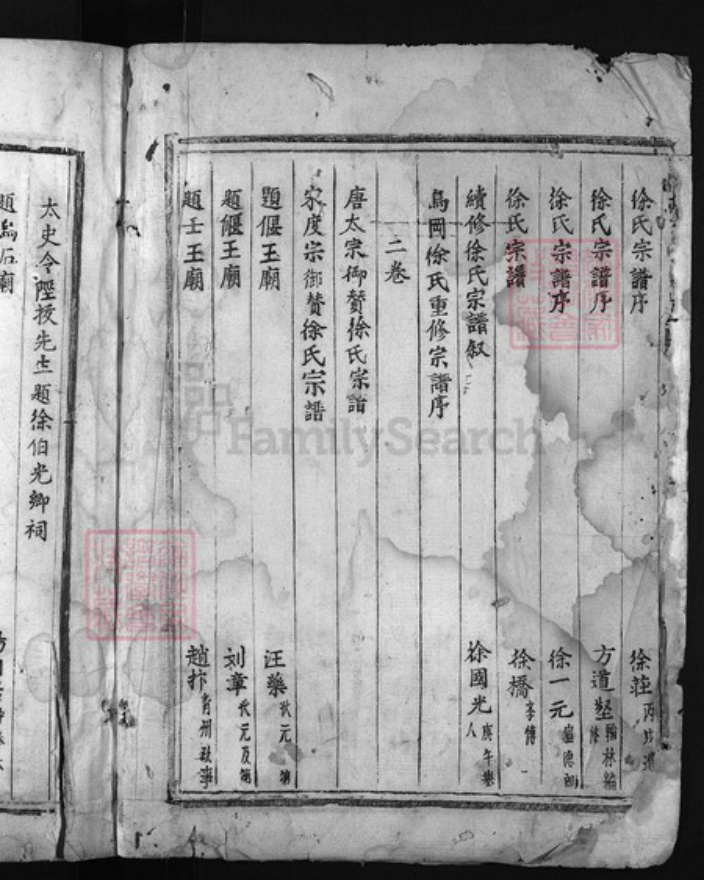 徐氏宗譜序 徐莊
徐氏宗譜序 方道堅 翰林編修
徐氏宗譜序 徐一元 宣德郎
徐氏宗譜 徐橋 李傅
續修徐氏宗譜叙 徐國光 庚午舉人
烏岡徐氏重修宗譜序
二卷
唐太宗御贊徐氏宗譜
宋度宗御贊徐氏宗譜
題偃王廟 汪藻 狀元
題偃王廟 刘章 狀元及第
題王廟 趙抃 青州政事
太史令陘按先生題徐伯光卿祠
FamilySearch